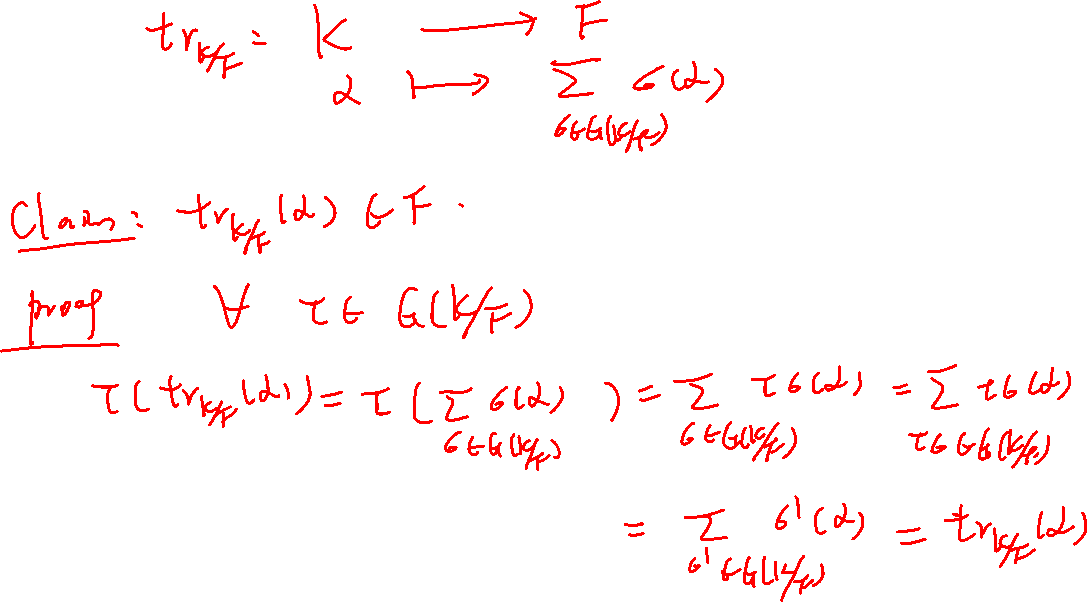 tr_{K/F} : K ⟶ F
α ⟼ ∑_{σ∈G(K/F)} σ(α)
Claim: tr_{K/F}(α) ∈ F.
proof ∀ τ ∈ G(K/F)
τ(tr_{K/F}(α)) = τ(∑_{σ∈G(K/F)} σ(α)) = ∑_{σ∈G(K/F)} τσ(α) = ∑_{τσ∈G(K/F)} τσ(α)
= ∑_{σ'∈G(K/F)} σ'(α) = tr_{K/F}(α)